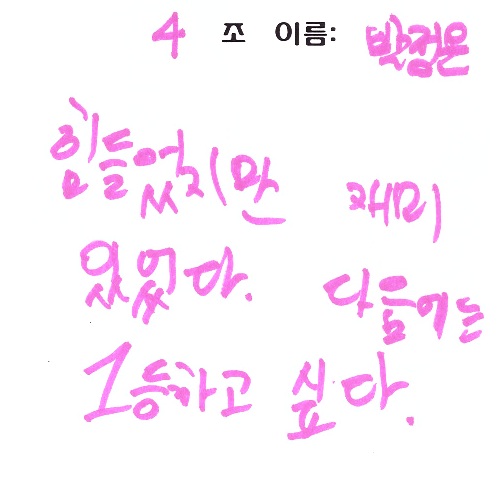 4 조 이름: 박정온
힘들었지만 재미
있었다. 다음에는
1등하고 싶다.